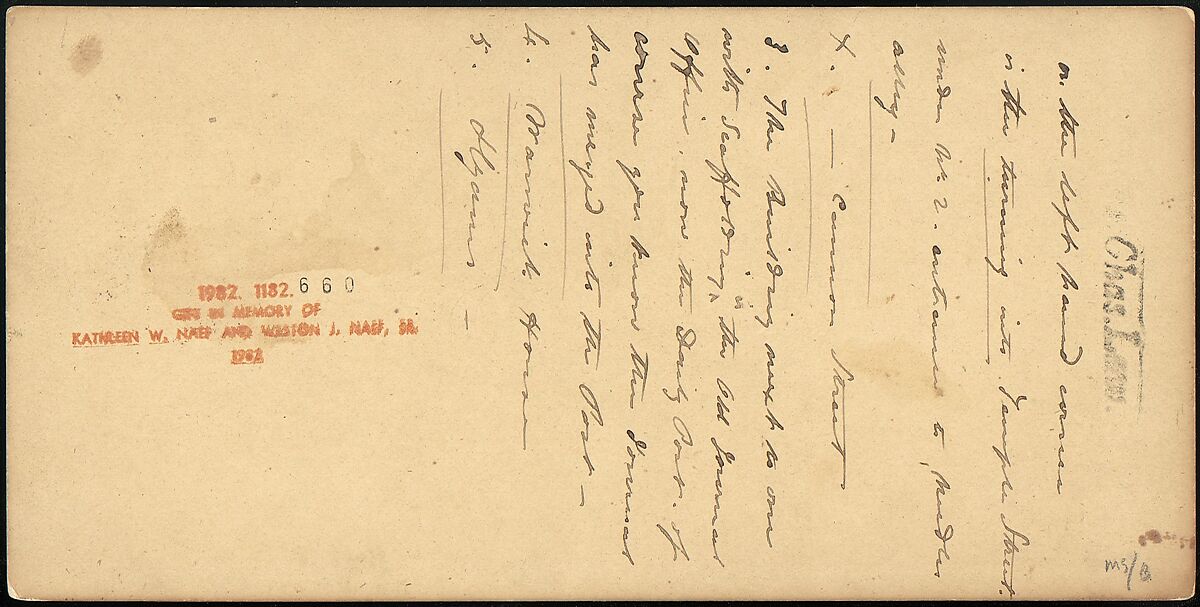 Chas. Law.
on the left hand corner
is the turning into Temple Street.
under No 2. entrance to Needles
alley –
X. — Cannon Street
3. The Building next to one
with Scaffolding, is the Old Journal
Office, now the Daily Post. of
course you know the Journal
has merged into the Post –
4. Warwick House
5. Hyams –
1982. 1182. 660
GIFT IN MEMORY OF
KATHLEEN W. NAEF AND WESTON J. NAEF, SR.
1982
MS/B